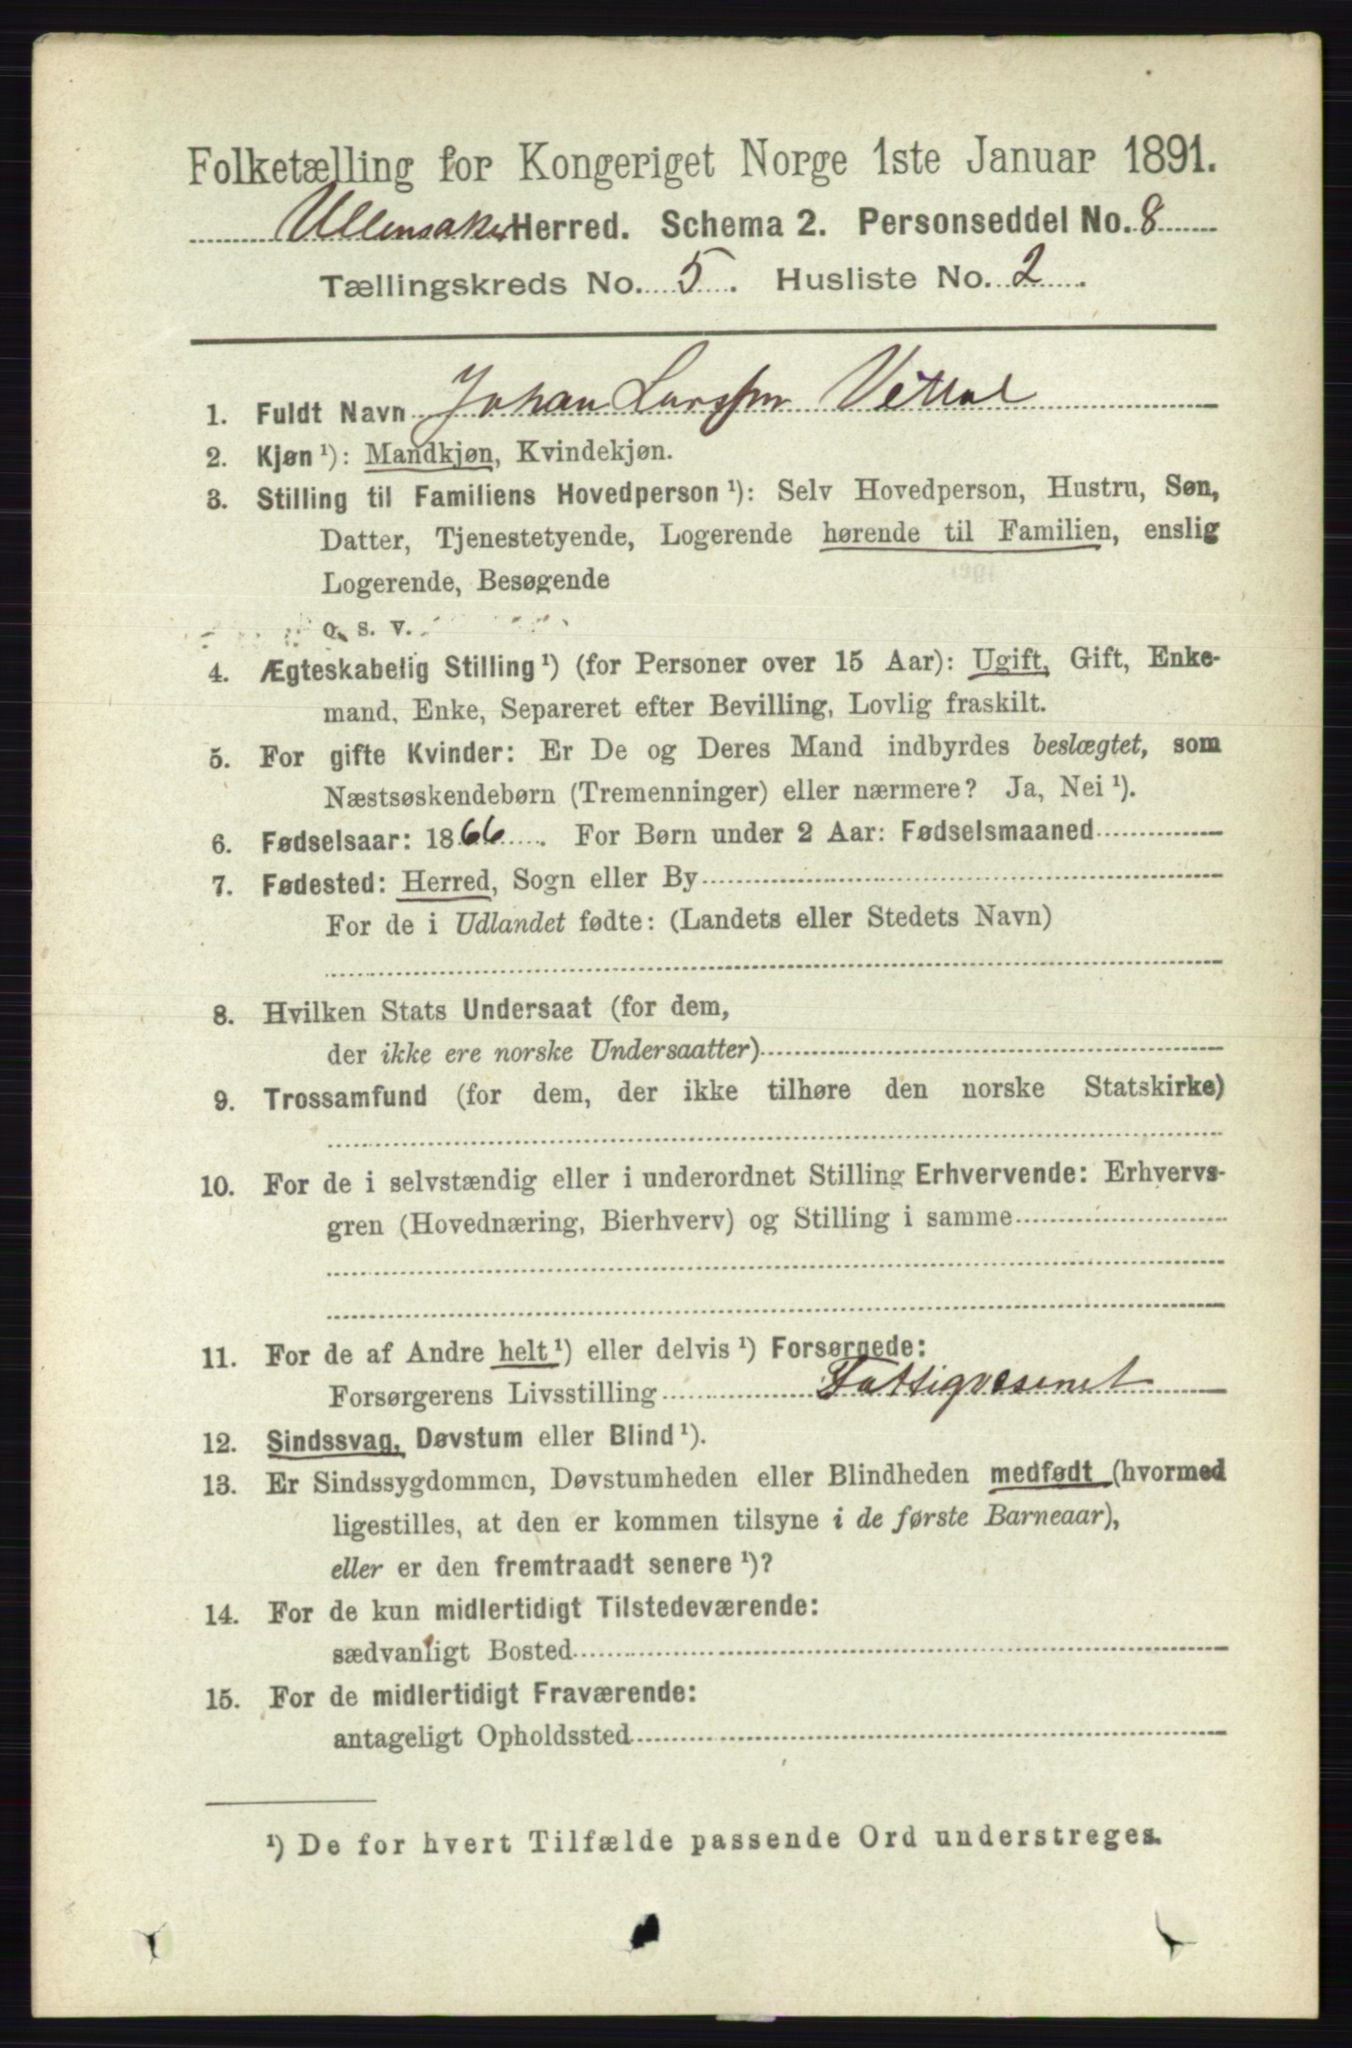 Folketælling for Kongeriget Norge 1ste Januar 1891.
Ullensaker Herred. Schema 2. Personseddel No. 8
Tællingskreds No. 5. Husliste No. 2.
1. Fuldt Navn Johan Larssen
2. Kjøn ¹): Mandkjøn, Kvindekjøn.
3. Stilling til Familiens Hovedperson ¹): Selv Hovedperson, Hustru, Søn,
Datter, Tjenestetyende, Logerende hørende til Familien, enslig
Logerende, Besøgende
o. s. v.
4. Ægteskabelig Stilling ¹) (for Personer over 15 Aar): Ugift, Gift, Enke-
mand, Enke, Separeret efter Bevilling, Lovlig fraskilt.
5. For gifte Kvinder: Er De og Deres Mand indbyrdes beslægtet, som
Næstsøskendebørn (Tremenninger) eller nærmere? Ja, Nei ¹).
6. Fødselsaar: 1866. For Børn under 2 Aar: Fødselsmaaned
7. Fødested: Herred, Sogn eller By
For de i Udlandet fødte: (Landets eller Stedets Navn)
8. Hvilken Stats Undersaat (for dem,
der ikke ere norske Undersaatter)
9. Trossamfund (for dem, der ikke tilhøre den norske Statskirke)
10. For de i selvstændig eller i underordnet Stilling Erhvervende: Erhvervs-
gren (Hovednæring, Bierhverv) og Stilling i samme
11. For de af Andre helt ¹) eller delvis ¹) Forsørgede:
Forsørgerens Livsstilling Fattigvæsenet
12. Sindssvag, Døvstum eller Blind ¹).
13. Er Sindssygdommen, Døvstumheden eller Blindheden medfødt (hvormed
ligestilles, at den er kommen tilsyne i de første Barneaar),
eller er den fremtraadt senere ¹)?
14. For de kun midlertidigt Tilstedeværende:
sædvanligt Bosted
15. For de midlertidigt Fraværende:
antageligt Opholdssted
¹) De for hvert Tilfælde passende Ord understreges.